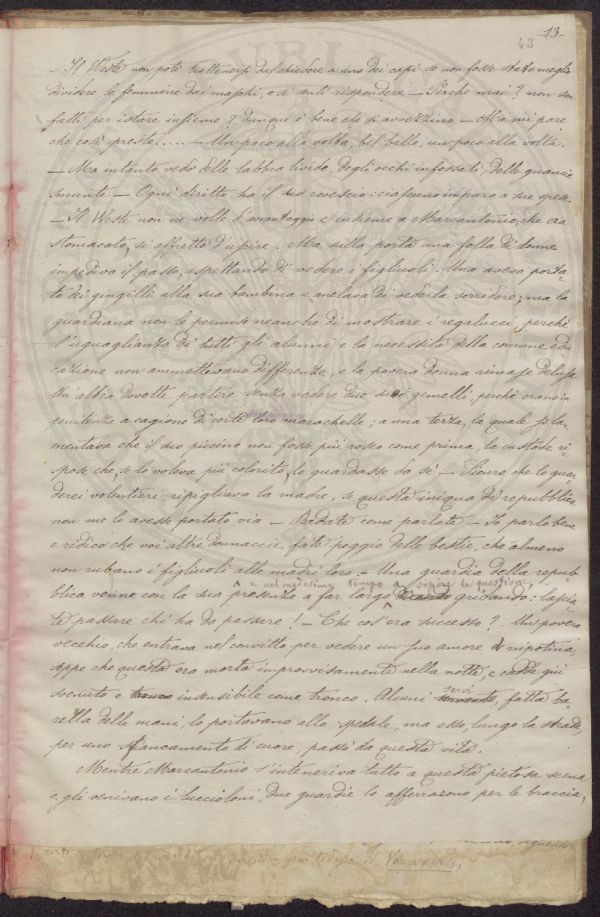 13
43
– Il West non poté trattenersi dal chiedere a uno dei capi se non fosse stato meglio
dividere le femmine dai maschi, e si sentì rispondere – Perché mai? non son
fatti per istare insieme? dunque è bene che si avvezzino. – Ma mi pare
che così presto..... – Un poco alla volta, bel bello, un poco alla volta.
– Ma intanto vedo delle labbra livide, degli occhi infossati, delle guancie
smunte – Ogni diritto ha il suo rovescio: ciascuno impara a sue spese.
– Il West non ne volle d'avvantaggio e insieme a Marcantonio, che era
stomacato, si affrettò d'uscire. Ma sulla porta una folla di donne
impediva il passo, aspettando di vedere i figliuoli. Una aveva porta-
to dei gingilli alla sua bambina e anelava di vederla sorridere; ma la
guardiana non le permise neanche di mostrare i regalucci, perché
l'uguaglianza di tutti gli alunni e la necessità della comune edu-
cazione non ammettevano differenze, e la povera donna rimase delusa.
Un'altra dovette partire senza vedere due suoi gemelli, perché erano in
penitenza a cagione di certe loro marachelle; a una terza, la quale si la-
mentava che il suo piccino non fosse più roseo come prima, la custode ri-
spose che se lo voleva più colorito, lo guardasse da sé – Sicuro che lo guar-
derei volentieri ripigliava la madre, se questa iniqua di repubblica
non me lo avesse portato via – Badate come parlate – Io parlo bene
e ridico che voi altre donnaccie, fate peggio delle bestie, che almeno
non rubano i figliuoli alle madri loro. – Una guardia della repub-
e nel medesimo tempo a sopire la questione
blica venne con la sua presenza a far largo gridando: lascia-
te passare chi ha da passare! – Che cos'era successo? Un povero
vecchio, che entrava nel convitto per vedere un suo amore di nipotina,
seppe che questa era morta improvvisamente nella notte, e cadde giù
svenuto e insensibile come tronco. Alcuni servi, fatta ba-
rella delle mani, lo portavano allo spedale, ma esso lungo la strada,
per uno sfiancamento di cuore, passò da questa vita.
Mentre Marcantonio s'inteneriva tutto a questa pietosa scena
e gli venivano i lucciconi, due guardie lo afferrarono per le braccia,
Vorwaerts,